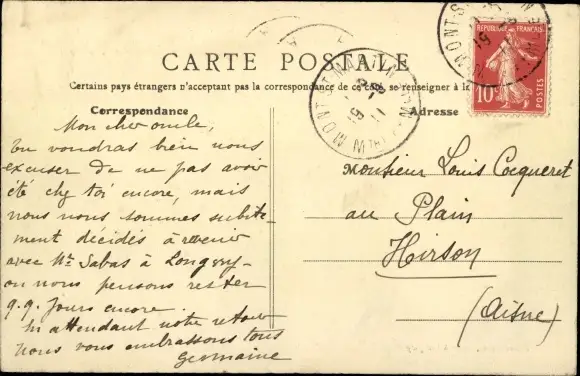 CARTE POSTALE
Certains pays étrangers n'acceptant pas la correspondance de ce côté, se renseigner à la
Correspondance
Adresse
REPUBLIQUE FRANÇAISE
10c
POSTES
MONT-ST-MARTIN
Mon cher oncle,
Tu voudras bien nous
excuser de ne pas avoir
été chez toi encore, mais
nous nous sommes subite-
ment décidés à revenir
avec Mr Sabas à Longwy-
où nous pensons rester
q.q. jours encore.
En attendant notre retour
nous vous embrassons tous
Germaine
Monsieur Louis Cocqueret
au Plain
Hirson
(Aisne)